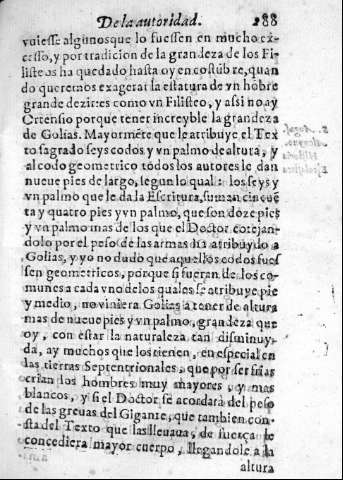 De la autoridad. 288
vuiesse algunos que lo fuessen en mucho ex-
cesso, y por tradicion de la grandeza de los Fi-
listeos ha quedado hasta oy en costũbre, quan
do queremos exagerar la estatura de vn hõbre
grande dezir es como vn Filisteo, y assi no ay
Ortensio porque tener increyble la grandeza
de Golias. Mayormẽte que le atribuye el Tex
to sagrado seys codos y vn palmo de altura, y
al codo geometrico todos los autores le dan
nueue pies de largo, segun lo qual: los seys y
vn palmo que le da la Escritura, suman cincuẽ
ta y quatro pies y vn palmo, que son doze pies
y vn palmo mas de los que el Doctor cotejan-
dolo por el peso de las armas ha atribuydo a
Golias, y yo no dudo que aquellos codos fues
sen geometricos, porque si fueran de los co-
munes a cada vno de los quales se atribuye pie
y medio, no viniera Golias a tener de altura
mas de nueue pies y vn palmo, grandeza que
oy, con estar la naturaleza tan disminuy-
da, ay muchos que los tienen, en especial en
las tierras Septentrionales, que por ser frias
crian los hombres muy mayores, y mas
blancos, y si el Doctor se acordara del peso
de las greuas del Gigante, que tambien con-
sta del Texto que las lleuaua, de fuerça le
concediera mayor cuerpo, llegandole a la
altura